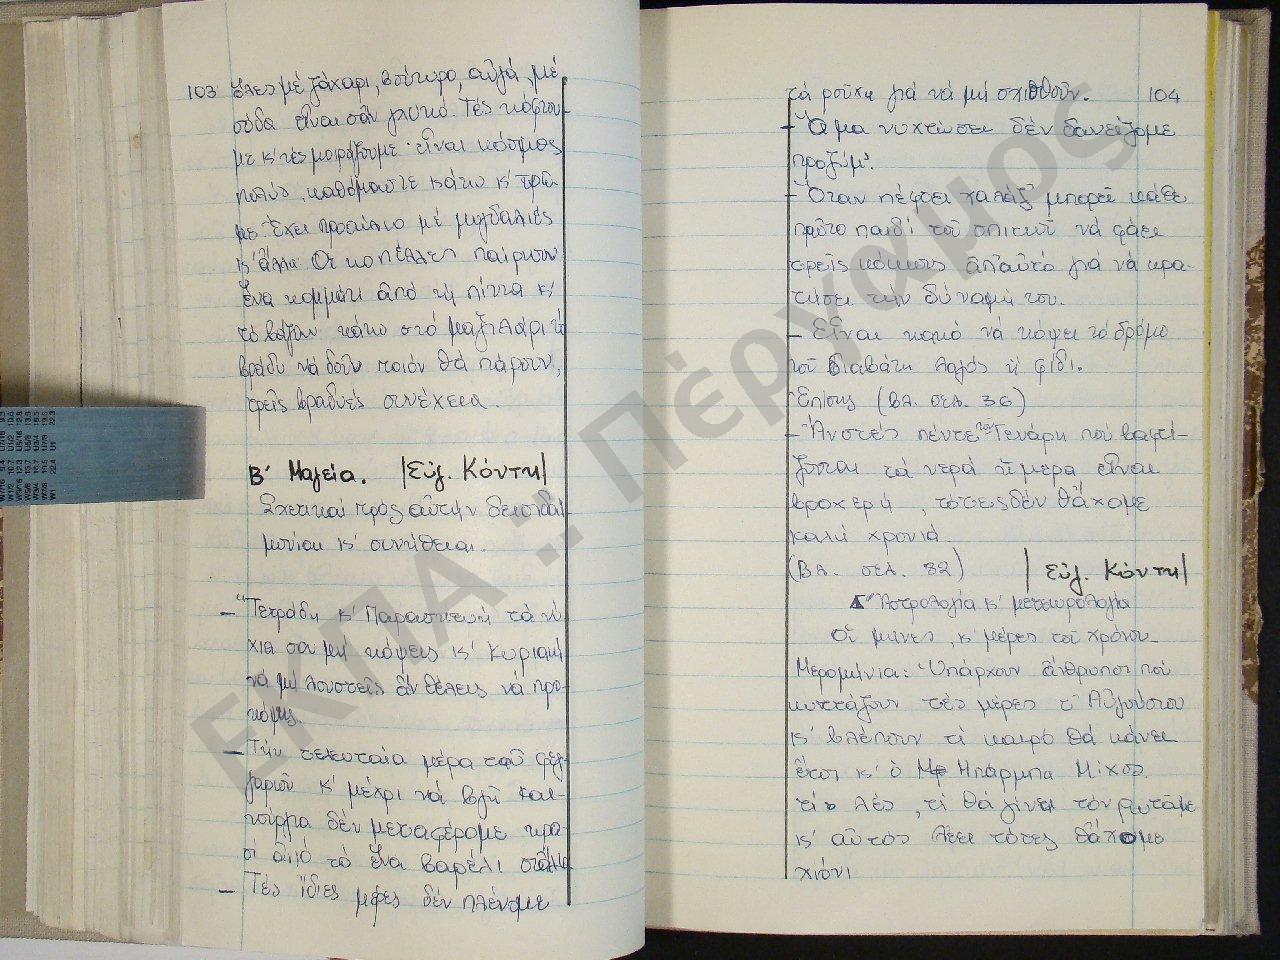 103 ὅλες μέ ζάχαρι, βούτυρο, αὐγά, μέ
σόδα εἶναι σάν γλυκό. Τές κόφτου-
με κ' τές μοιράζουμε εἶναι κόσμος
πολύς, καθόμαστε κάτω κ' τρῶ-
με. Ἔχει προαύλιο μέ μυγδαλιές
κ' ἄλλα. Οἱ κοπέλλες παίρνουν
ἕνα κομμάτι ἀπό τή πίττα κ'
τό βάζουν κάτω στό μαξιλάρι τό
βράδυ νά δοῦν ποιόν θά πάρουν,
τρεῖς βραδυές συνέχεια.
Β' Μαγεία. |Εὐγ. Κόντη|
Σχετικαί πρός αὐτήν δεισιδαι-
μονίαι κ' συνήθειαι.
- "Τετράδη κ' Παρασκευή τά νύ-
χια σου μή κόψεις κ' Κυριακή
νά μή λουστεῖς ἄν θέλεις νά προ-
κόψης.
- Τήν τελευταία μέρα τοῦ φεγ-
γαριοῦ κ' μέχρι νά βγῆ και-
νούργιο δέν μεταφέρομε κρα-
σί ἀπό τό ἕνα βαρέλι στἄλλο
- Τές ἴδιες μέρες δέν πλένομε
104
τά ροῦχα γιά νά μή σχισθοῦν.
- Ἅμα νυχτώσει δέν δανείζομε
προζύμ'.
- Ὅταν πέφτει χαλάζ' μπορεῖ κάθε
πρῶτο παιδί τοῦ σπιτιοῦ νά φάει
τρεῖς κόκκους ἀπ' αὐτό γιά νά κρα-
τήσει τήν δύναμή του.
- Εἶναι κακό νά κόψει τό δρόμο
τοῦ διαβάτη λαγός ἤ φίδι.
Ἐπίσης (Βλ. σελ. 36)
- Ἄν στές πέντε τοῦ Γενάρη πού βαφτί-
ζονται τά νερά ἡ μέρα εἶναι
βροχερή, τότες δέν θἄχομε
καλή χρονιά
(Βλ. σελ. 32) |Εὐγ. Κόντη|
Δ' Ἀστρολογία κ' μετεωρολογία
Οἱ μῆνες, κ' μέρες τοῦ χρόνου
Μερομήνια: Ὑπάρχουν ἄνθρωποι πού
κυττάζουν τές μέρες τ' Αὐγούστου
κ' βλέπουν τί καιρό θά κάνει
ἔτσι κ' ὁ Μπάρμπα Μίχος.
τί λές, τί θά γίνει τόν ρωτᾶμε
κ' αὐτός λέει τότες θἄχομε
χιόνι
ΕΚΠΑ :: Πέργαμος